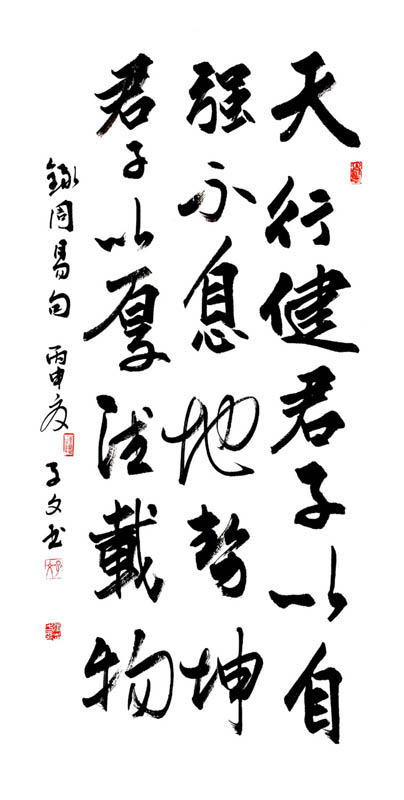 天行健君子以自
强不息地勢坤
君子以厚德載物
錄周易句 丙申夏 子文书